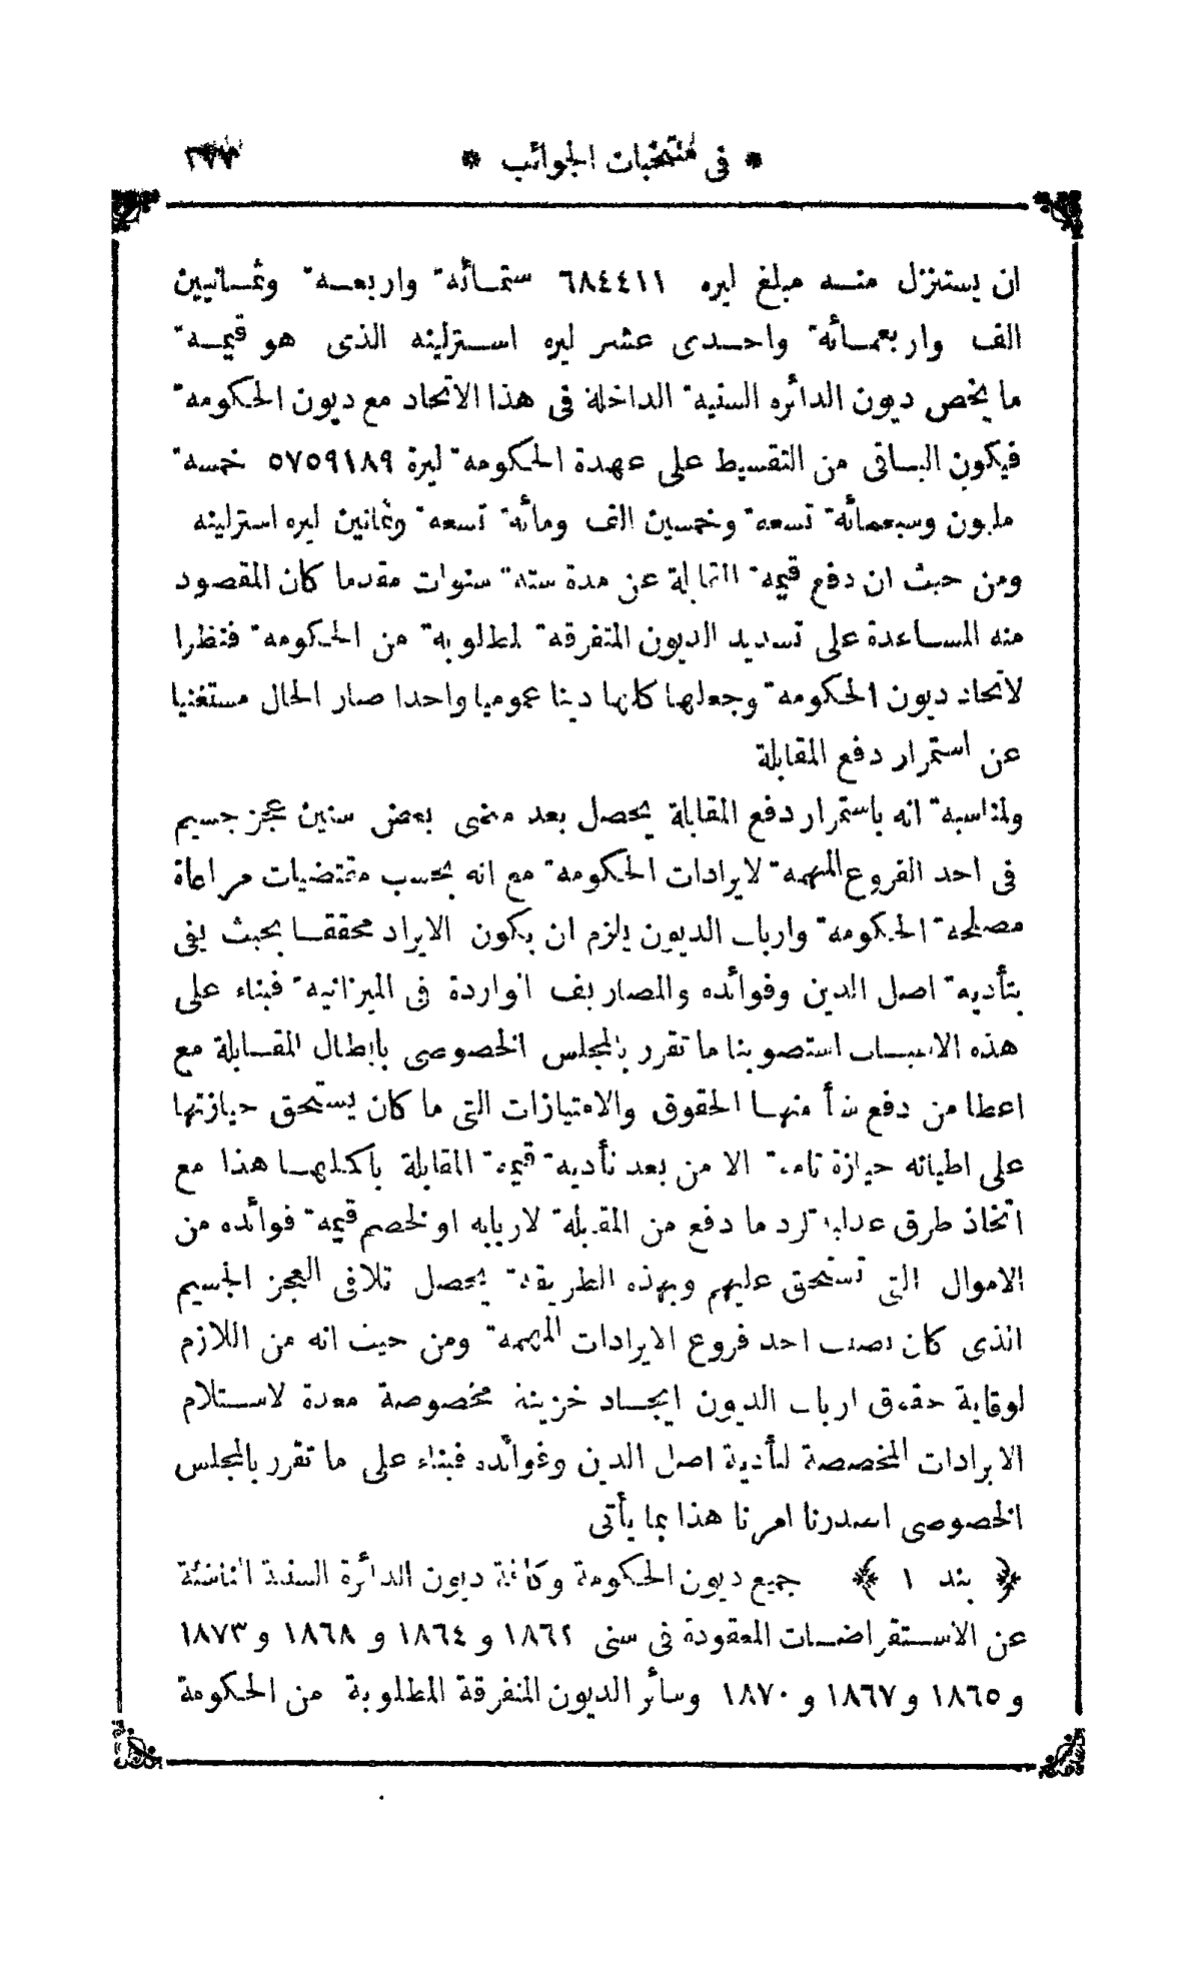 * فى منتخبات الجوائب *
ان يستنزل منه مبلغ ليره ٦٨٤٤١١ ستمائة واربعة وثمانيين
الف واربعمائة واحدى عشر ليره استرلينه الذى هو قيمة
ما يخص ديون الدائره السنية الداخلة فى هذا الاتحاد مع ديون الحكومة
فيكون الباقى من التقسيط على عهدة الحكومة ليرة ٥٧٥٩١٨٩ خمسة
مليون وسبعمائة تسعة وخمسين الف ومائة تسعة وثمانين ليره استرلينه
ومن حيث ان دفع قيمة المقابلة عن مدة ستة سنوات مقدما كان المقصود
منه المساعدة على تسديد الديون المتفرقة المطلوبة من الحكومة فنظرا
لاتحاد ديون الحكومة وجعلها كلها دينا عموميا واحدا صار الحال مستغنيا
عن استمرار دفع المقابلة
ولمناسبة انه باستمرار دفع المقابلة يحصل بعد مضى بعض سنين عجز جسيم
فى احد الفروع المهمة لايرادات الحكومة مع انه بحسب مقتضيات مراعاة
مصلحة الحكومة وارباب الديون يلزم ان يكون الايراد محققا بحيث يفى
بتأدية اصل الدين وفوائده والمصاريف الواردة فى الميزانية فبناء على
هذه الاسباب استصوبنا ما تقرر بالمجلس الخصوصى بابطال المقابلة مع
اعطا من دفع شأ منها الحقوق والامتيازات التى ما كان يستحق حيازتها
على اطيانه حيازة تامة الا من بعد تأدية قيمة المقابلة باكملها هذا مع
اتخاذ طرق عدلية لرد ما دفع من المقابلة لاربابه او لخصم قيمة فوائده من
الاموال التى تستحق عليهم وبهذه الطريقة يحصل تلافى العجز الجسيم
الذى كان يصيب احد فروع الايرادات المهمة ومن حيث انه من اللازم
لوقاية حقوق ارباب الديون ايجاد خزينة مخصوصة معدة لاستلام
الايرادات المخصصة لتأدية اصل الدين وفوائده فبناء على ما تقرر بالمجلس
الخصوصى اصدرنا امرنا هذا بما يأتى
﴿ بند ١ ﴾ جميع ديون الحكومة وكافة ديون الدائرة السنية الناشئة
عن الاستقراضات المعقودة فى سنى ١٨٦٢ و ١٨٦٤ و ١٨٦٨ و ١٨٧٣
و ١٨٦٥ و ١٨٦٧ و ١٨٧٠ وسائر الديون المتفرقة المطلوبة من الحكومة